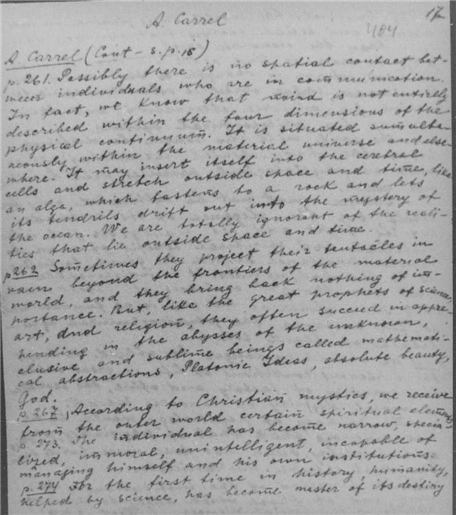 17
A. Carrel
484
A. Carrel (Cont - s. p. 15)
p. 261. Possibly there is no spatial contact bet-
ween individuals who are in communication.
In fact, we know that mind is not entirely
described within the four dimensions of the
physical continuum. It is situated simulta-
neously within the material universe and else-
where. It may insert itself into the cerebral
cells and stretch outside space and time, like
an alga, which fastens to a rock and lets
its tendrils drift out into the mystery of
the ocean. We are totally ignorant of the reali-
ties that lie outside space and time.
p262 Sometimes they project their tentacles in
vain beyond the frontiers of the material
world, and they bring back nothing of im-
portance. But, like the great prophets of science,
art, and religion, they often succeed in appre-
hending in the abysses of the unknown,
elusive and sublime beings called mathemati-
cal abstractions, Platonic Ideas, absolute beauty,
God.
p. 267, According to Christian mystics, we receive
from the outer world certain spiritual elements
p. 273. The individual has become narrow, specia-
lized, immoral, unintelligent, incapable of
managing himself and his own institutions.
p. 274 For the first time in history, humanity,
helped by science, has become master of its destiny